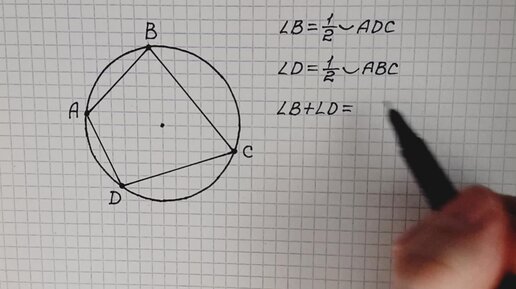 B
A
C
D
∠B=1/2 ⌣ ADC
∠D=1/2 ⌣ ABC
∠B+∠D=